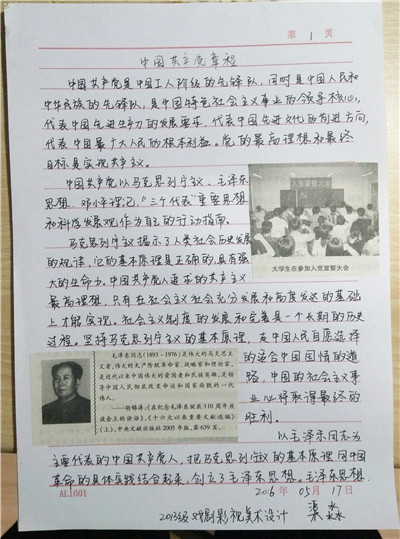 第 1 页
中国共产党章程
中国共产党是中国工人阶级的先锋队，同时是中国人民和
中华民族的先锋队，是中国特色社会主义事业的领导核心，
代表中国先进生产力的发展要求，代表中国先进文化的前进方向，
代表中国最广大人民的根本利益。党的最高理想和最终
目标是实现共产主义。
中国共产党以马克思列宁主义、毛泽东
思想、邓小平理论、"三个代表"重要思想
和科学发展观作为自己的行动指南。
马克思列宁主义揭示了人类社会历史发展
的规律，它的基本原理是正确的，具有强
大的生命力。中国共产党人追求的共产主义
最高理想，只有在社会主义社会充分发展和高度发达的基础
上才能实现。社会主义制度的发展和完善是一个长期的历史
过程。坚持马克思列宁主义的基本原理，走中国人民自愿选择
的适合中国国情的道
路，中国的社会主义事
业必将取得最终的
胜利。
以毛泽东同志为
主要代表的中国共产党人，把马克思列宁主义的基本原理同中国
革命的具体实践结合起来，创立了毛泽东思想。毛泽东思想
大学生在参加入党宣誓大会
毛泽东同志(1893－1976)是伟大的马克思主
义者，伟大的无产阶级革命家、战略家和理论家，
是近代以来中国伟大的爱国者和民族英雄，是领
导中国人民彻底改变命运和国家面貌的一代
伟人。
——胡锦涛：《在纪念毛泽东诞辰 110 周年座
谈会上的讲话》，《十六大以来重要文献选编》
(上)，中央文献出版社 2005 年版，第 639 页。
AL1601
2016 年 05 月 17 日
2013级 戏剧影视美术设计